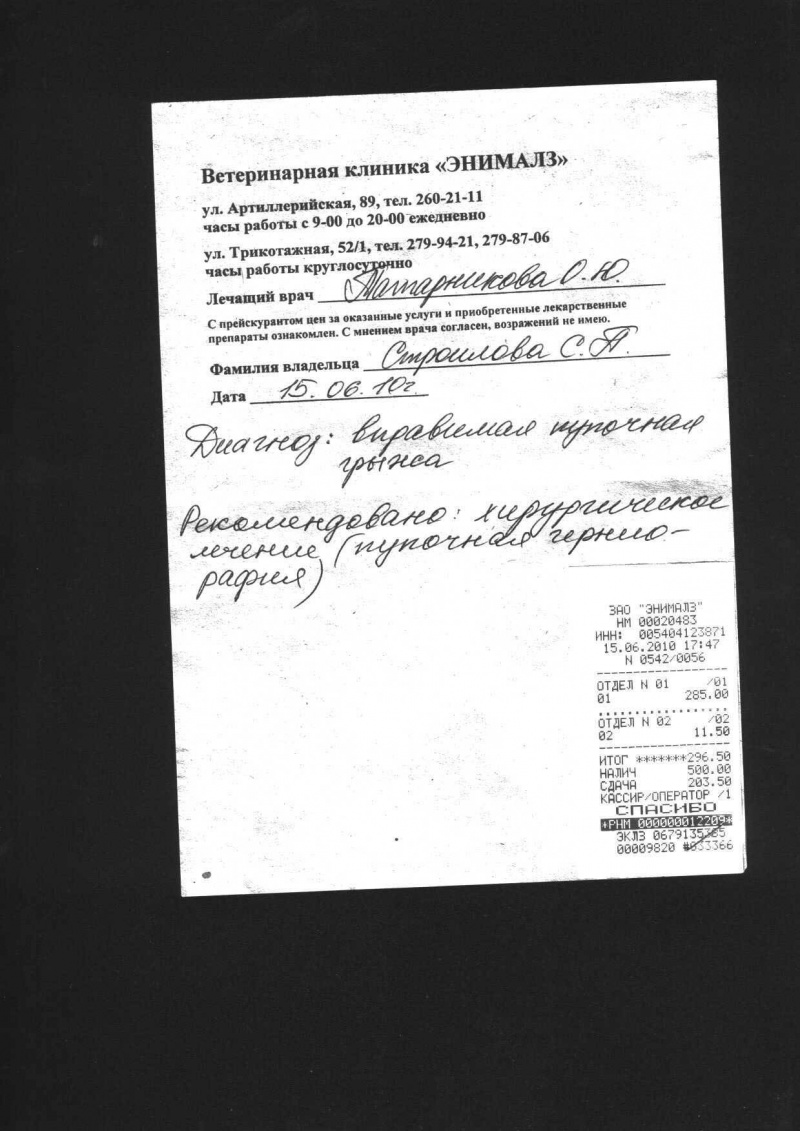 Ветеринарная клиника «ЭНИМАЛЗ»
ул. Артиллерийская, 89, тел. 260-21-11
часы работы с 9-00 до 20-00 ежедневно
ул. Трикотажная, 52/1, тел. 279-94-21, 279-87-06
часы работы круглосуточно
Лечащий врач Татарникова О.Ю.
С прейскурантом цен за оказанные услуги и приобретенные лекарственные
препараты ознакомлен. С мнением врача согласен, возражений не имею.
Фамилия владельца Строилова С.П.
Дата 15.06.10г.
Диагноз: вправимая пупочная
грыжа
Рекомендовано: хирургическое
лечение (пупочная гернио-
рафия)
ЗАО "ЭНИМАЛЗ"
НМ 00020483
ИНН: 005404123871
15.06.2010 17:47
N 0542/0056
ОТДЕЛ N 01 /01
01 285.00
ОТДЕЛ N 02 /02
02 11.50
ИТОГ *******296.50
НАЛИЧ 500.00
СДАЧА 203.50
КАССИР/ОПЕРАТОР /1
СПАСИБО
*РНМ 000000012209*
ЭКЛЗ 0679135365
00009820 #033366